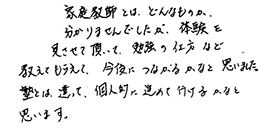 家庭教師とは、どんなものか、
分かりませんでしたが、体験を
見させて頂いて、勉強の仕方など
教えてもらえて、今後につながるかなと思いました
塾とは、違って、個人的に進めて行けるかなと
思います。